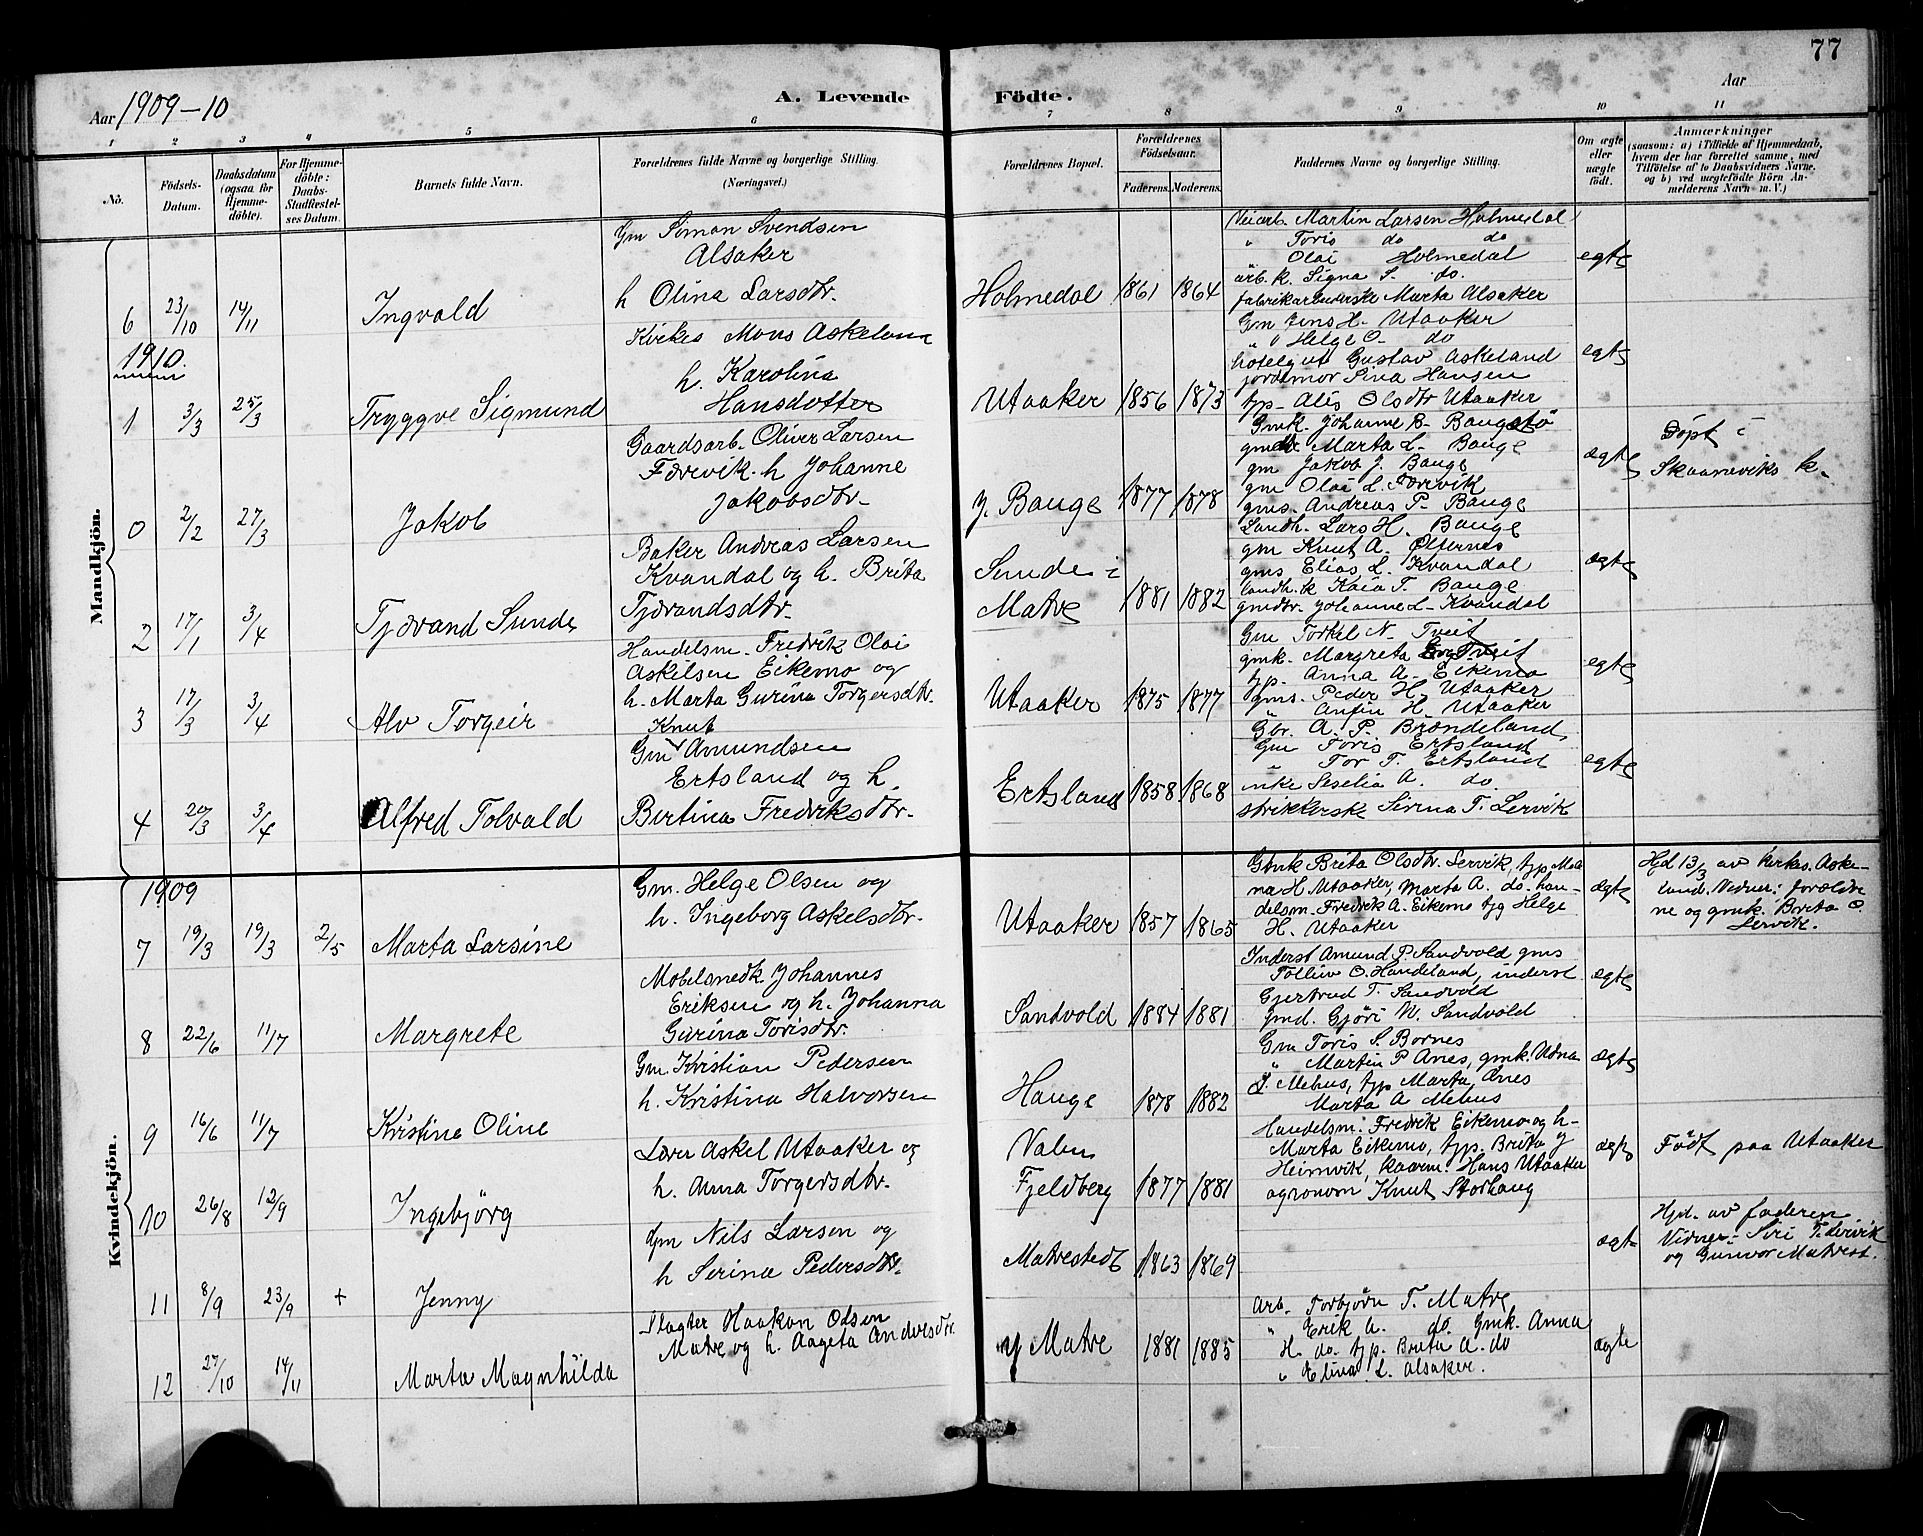 77
Aar 1909-10
A. Levende Födte.
Aar
1 2 3 4 5 6 7 8 9 10 11
No.
Födsels-Datum.
Daabsdatum (ogsaa for Hjemme-döbte).
For Hjemme-döbte: Daabs-Stadfæstel-ses Datum.
Barnets fulde Navn.
Forældrenes fulde Navne og borgerlige Stilling. (Næringsvei.)
Forældrenes Bopæl.
Forældrenes Födselsaar.
Faderens. Moderens.
Faddernes Navne og borgerlige Stilling.
Om ægte eller uægte födt.
Anmærkninger
(saasom: a) i Tilfælde af Hjemmedaab, hvem der har forrettet samme, med Tilföielse af to Daabsvidners Navne, og b) ved uægtefödte Börn An-melderens Navn m. V.)
Mandkjön.
6 23/10 14/11 Ingvald
Gm Simon Svendsen
Alsaker
h Olina Larsdtr.
Holmedal 1861 1864
Veiarb. Martin Larsen Holmedal
" Toris do do
" Olai Holmedal
arb. k. Signa S. do.
fabrikarbeiderske Marta Alsaker
egte
1910.
1 3/3 25/3 Tryggve Sigmund
Kirkes Mons Askeland
h. Karolina
Hansdotter
Utaaker 1856 1873
Gm Jens H. Utaaker
" Helge O. do
hotelgut Gustav Askeland
jordmor Sina Hansen
tp. Alis Olsdtr Utaaker
egte
0 2/2 27/3 Jakob
Gaardsarb. Oliver Larsen
Færevik. h Johanne
Jakobsdtr.
y. Bauge 1877 1878
Gmk. Johanne B. Baugstø
Marta L. Bauge
gm Jakob J. Bauge
gm Olai L. Færevik
gms. Andreas P. Bauge
ægte
Döpt i
Skaaneviks k.
2 17/1 3/4 Tjærand Sunde
Baker Andreas Larsen
Kvandal og h. Brita
Tjærandsdtr.
Sunde i
Matre 1881 1882
Landh. Lars H. Bauge
gm Knut A. Ølfernes
gms Elias L. Kvandal
landh. k Kaia T. Bauge
gmdtr. Johanne L. Kvandal
ægte
3 17/3 3/4 Alv Torgeir
Handelsm. Fredrik Olai
Askilsen Eikemo og
h. Marta Gurina Torgersdtr.
Utaaker 1875 1877
Gm Torkel N. Tveit
gmk. Margreta Tveit
tp. Anna A. Eikemo
gms. Peder H. Utaaker
" Anfin H. Utaaker
egte
4 20/3 3/4 Alfred Tolvald
Knut
Gm Amundsen
Ertsland og h.
Bertina Fredriksdtr.
Ertsland 1858 1868
Gbr. A. P. Brændeland,
Gm Toris Ertsland
" Tor T. Ertsland
enke Seselia A. do.
strikkerske Sirina T. Lervik
egte
Kvindekjön.
1909
7 19/3 19/3 2/5 Marta Larsine
Gm. Helge Olsen og
h. Ingeborg Askelsdtr.
Utaaker 1857 1865
Gmk Brita Olsdtr. Lervik, tjp. Mal
na H. Utaaker, Marta A. do. han-
delsm. Fredrik A. Eikemo tjg Helge
H. Utaaker
ægte
Hjd 13/3 av kirkes. Aske-
land. Vidner: foreldre
ne og gmk. Brita O.
Lervik.
8 22/6 11/7 Margrete
Møbelsnedk. Johannes
Eriksen og h. Johanna
Gurina Torisdtr.
Sandvold 1884 1881
Inderst Amund P Sandvold gms
Tolleiv O. Handeland, inderst
Gjertrud T. Sandvold
gmd. Gjöri N. Sandvold
ægte
9 16/6 11/7 Kristine Oline
Gm. Kristian Pedersen
h. Kristina Halvorsen
Hauge 1878 1882
Gm Toris S. Bornes
" Martin P Anes, gmk. Udna
L. Mehus, tjp Marta Anes
Marta A Mehus
ægte
10 26/8 12/9 Ingebjörg
Lærer Askel Utaaker og
h. Anna Torgersdtr.
Valen
Fjeldberg 1877 1881
Handelsm. Fredrik Eikemo og h.
Marta Eikemo, tjp. Brita y
Heimvik, kaarm. Hans Utaaker
agronom Knut Storhaug
ægte
Født paa Utaaker
11 8/9 23/9 + Jenny
Gm Nils Larsen og
h Serina Pedersdtr.
Matrestedt 1863 1869
ægte
Hjd. av faderen
Vidner: Siri T. Lervik
og Gunvor Matrest.
12 27/10 14/11 Marta Magnhilda
Slagter Haakon Olsen
Matre og h. Aageta Andersdtr.
y Matre 1881 1885
Arb. Torbjörn T. Matre
" Erik A. do. Gmk. Anna
H. do. tjp. Brita A. do
" Elina L. Alsaker.
ægte